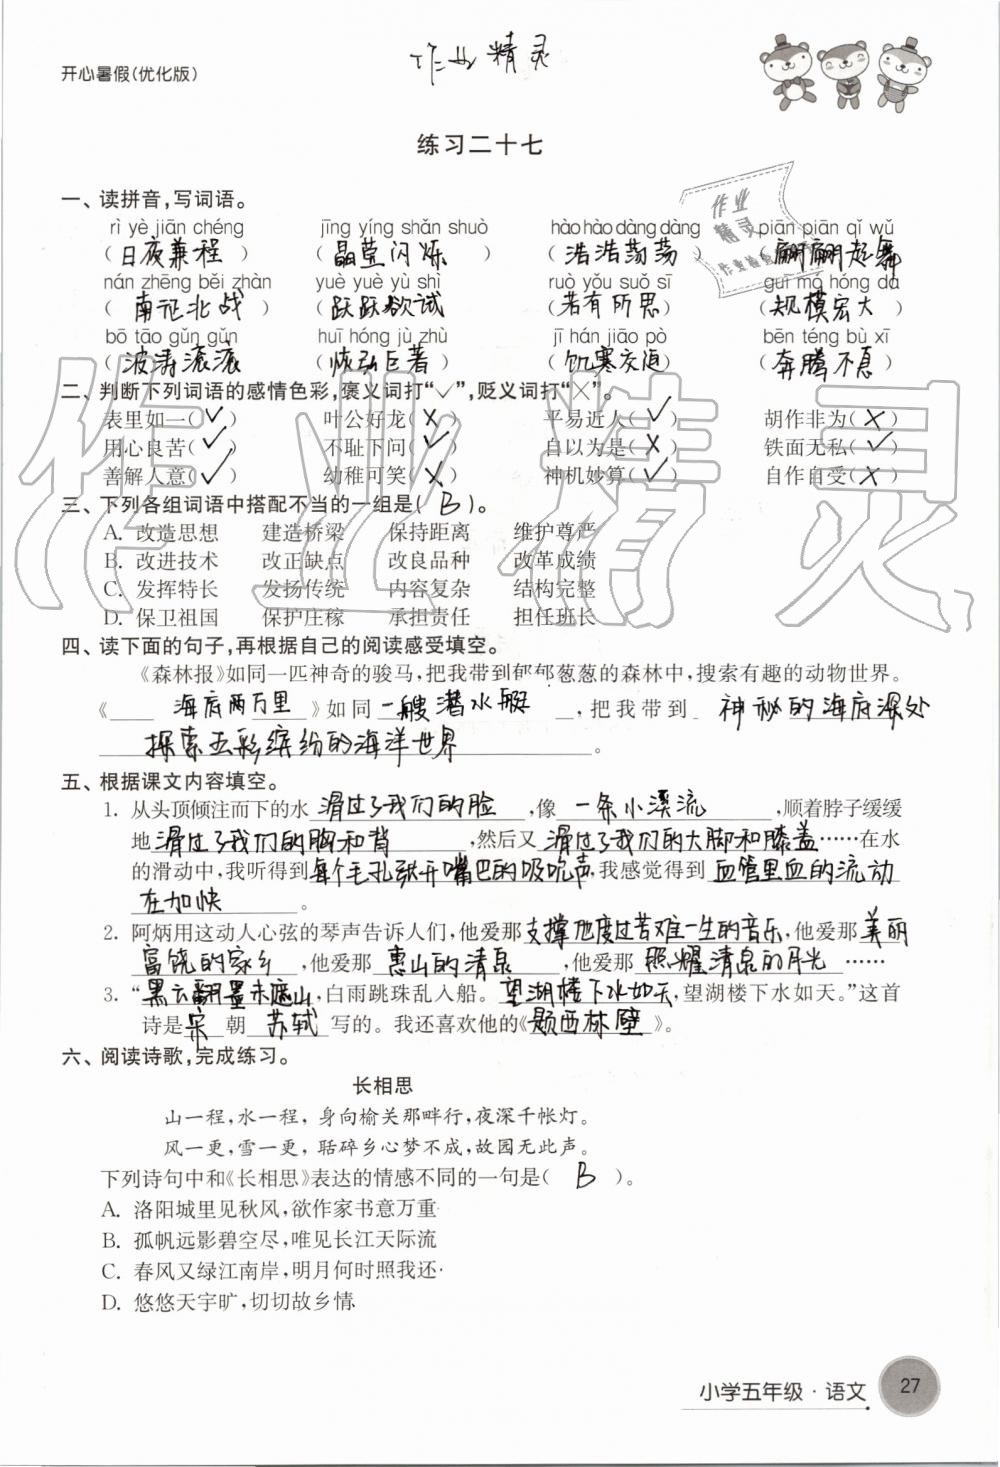 开心暑假(优化版)
作业精灵
练习二十七
一、读拼音,写词语。
rì yè jiān chéng jīng yíng shǎn shuò hào hào dàng dàng piān piān qǐ wǔ
(日夜兼程) (晶莹闪烁) (浩浩荡荡) (翩翩起舞
nán zhēng běi zhàn yuè yuè yù shì ruò yǒu suǒ sī guī mó hóng dà
(南征北战) (跃跃欲试) (若有所思) (规模宏大)
bō tāo gǔn gǔn huī hóng jù zhù jī hán jiāo pò bēn téng bù xī
(波涛滚滚) (恢弘巨著) (饥寒交迫) (奔腾不息)
二、判断下列词语的感情色彩,褒义词打“√”,贬义词打“×”。
表里如一(✓) 叶公好龙(×) 平易近人(✓) 胡作非为(×)
用心良苦(✓) 不耻下问(✓) 自以为是(×) 铁面无私(✓)
善解人意(✓) 幼稚可笑(×) 神机妙算(✓) 自作自受(×)
三、下列各组词语中搭配不当的一组是(B)。
A. 改造思想 建造桥梁 保持距离 维护尊严
B. 改进技术 改正缺点 改良品种 改革成绩
C. 发挥特长 发扬传统 内容复杂 结构完整
D. 保卫祖国 保护庄稼 承担责任 担任班长
四、读下面的句子,再根据自己的阅读感受填空。
《森林报》如同一匹神奇的骏马,把我带到郁郁葱葱的森林中,搜索有趣的动物世界。
《海底两万里》如同一艘潜水艇,把我带到神秘的海底深处
探索五彩缤纷的海洋世界。
五、根据课文内容填空。
1. 从头顶倾注而下的水滑过了我们的脸,像一条小溪流,顺着脖子缓缓
地滑过了我们的胸和背,然后又滑过了我们的大脚和膝盖……在水
的滑动中,我听得到每个毛孔张开嘴巴的吸吮声,我感觉得到血管里血的流动
在加快。
2. 阿炳用这动人心弦的琴声告诉人们,他爱那支撑他度过苦难一生的音乐,他爱那美丽
富饶的家乡,他爱那惠山的清泉,他爱那照耀清泉的月光……
3. “黑云翻墨未遮山,白雨跳珠乱入船。望湖楼下水如天,望湖楼下水如天。”这首
诗是宋朝苏轼写的。我还喜欢他的《题西林壁》。
六、阅读诗歌,完成练习。
长相思
山一程,水一程,身向榆关那畔行,夜深千帐灯。
风一更,雪一更,聒碎乡心梦不成,故园无此声。
下列诗句中和《长相思》表达的情感不同的一句是(B)。
A. 洛阳城里见秋风,欲作家书意万重
B. 孤帆远影碧空尽,唯见长江天际流
C. 春风又绿江南岸,明月何时照我还
D. 悠悠天宇旷,切切故乡情
小学五年级·语文 27
作业精灵
作业
精灵